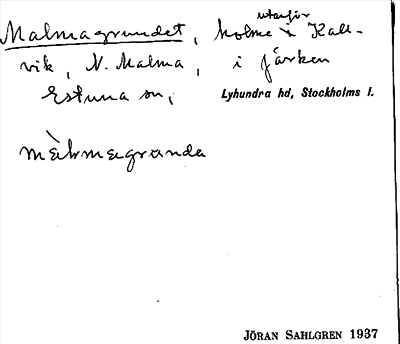 Malmagrundet, holme utanför Kall-
vik, N. Malma, i fjärden
Estuna sn, Lyhundra hd, Stockholms l.
màlmagrunda
JÖRAN SAHLGREN 1937